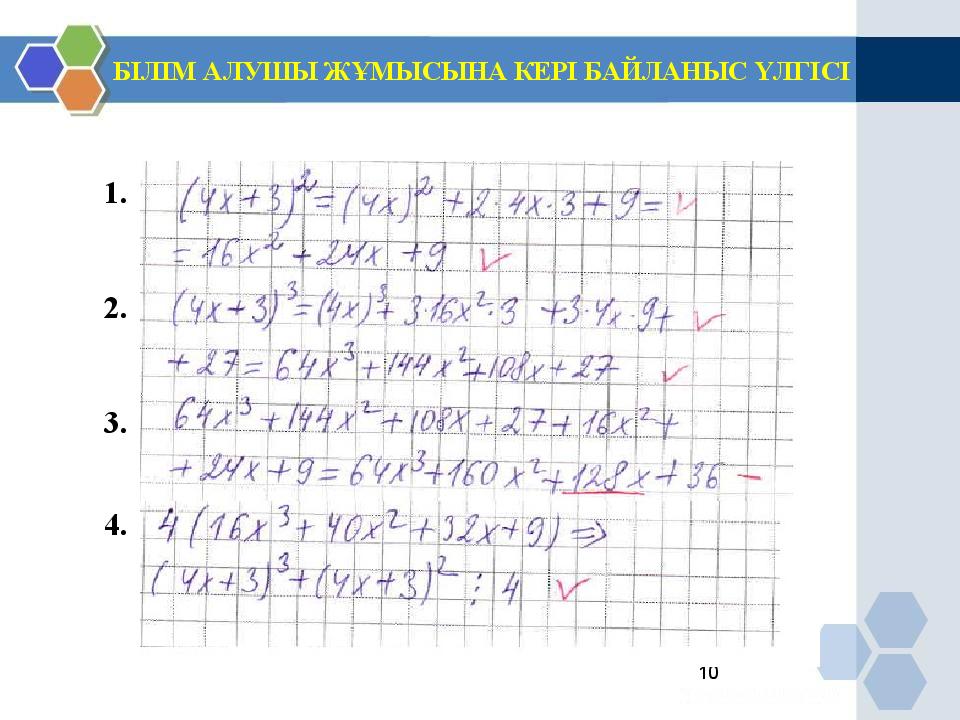 БІЛІМ АЛУШЫ ЖҰМЫСЫНА КЕРІ БАЙЛАНЫС ҮЛГІСІ
1. (4x+3)²=(4x)²+2·4x·3+9=
=16x²+24x+9
2. (4x+3)³=(4x)³+3·16x²·3+3·4x·9+
+27=64x³+144x²+108x+27
3. 64x³+144x²+108x+27+16x²+
+24x+9=64x³+160x²+128x+36 –
4. 4(16x³+40x²+32x+9)⇒
(4x+3)³+(4x+3)² ⋮ 4
10